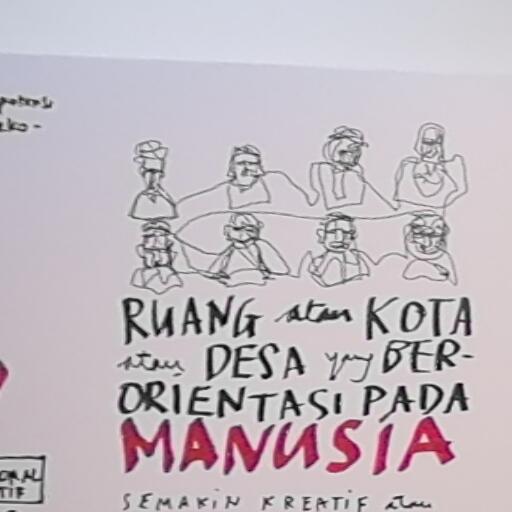 eko-
RUANG atau KOTA
atau DESA yang BER-
ORIENTASI PADA
MANUSIA
SEMAKIN KREATIF atau
TIF